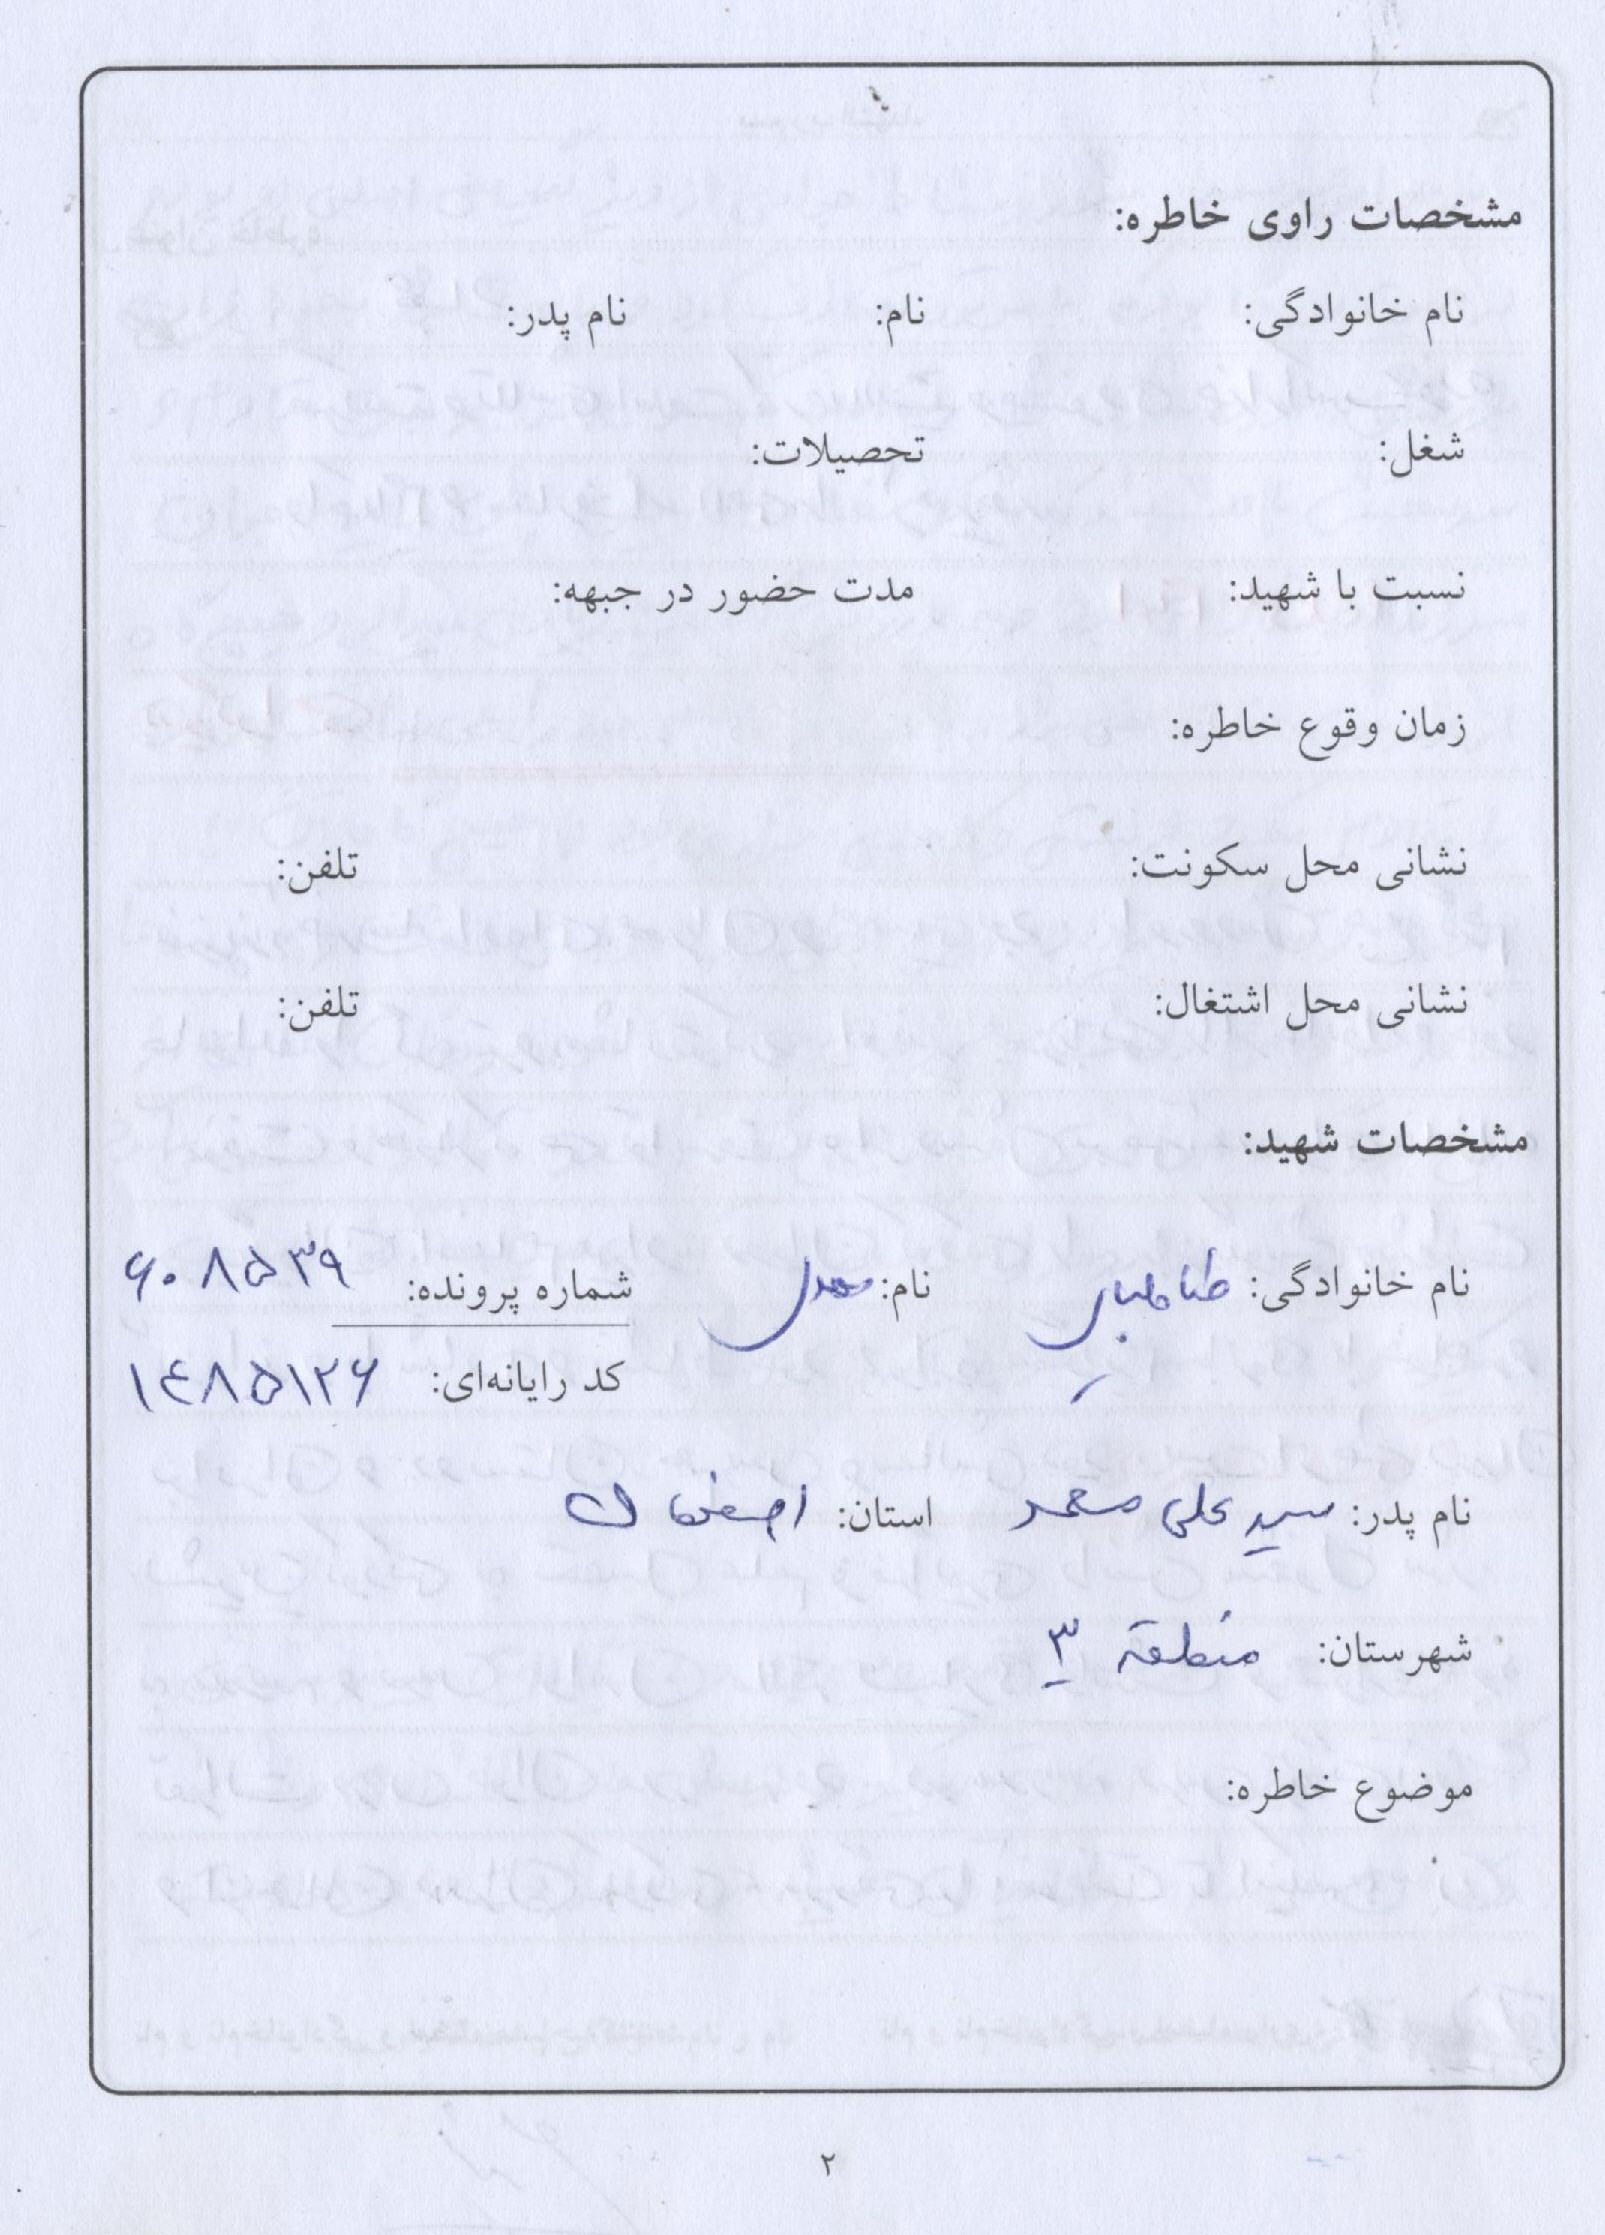 مشخصات راوی خاطره:
نام خانوادگی: نام: نام پدر:
شغل: تحصیلات:
نسبت با شهید: مدت حضور در جبهه:
زمان وقوع خاطره:
نشانی محل سکونت: تلفن:
نشانی محل اشتغال: تلفن:
مشخصات شهید:
نام خانوادگی: نام: شماره پرونده: ۶۰۸۵۳۹
کد رایانه‌ای: ۱۴۸۵۱۲۶
نام پدر: سید علی محمد استان: اصفهان
شهرستان: منطقه ۳
موضوع خاطره:
۲